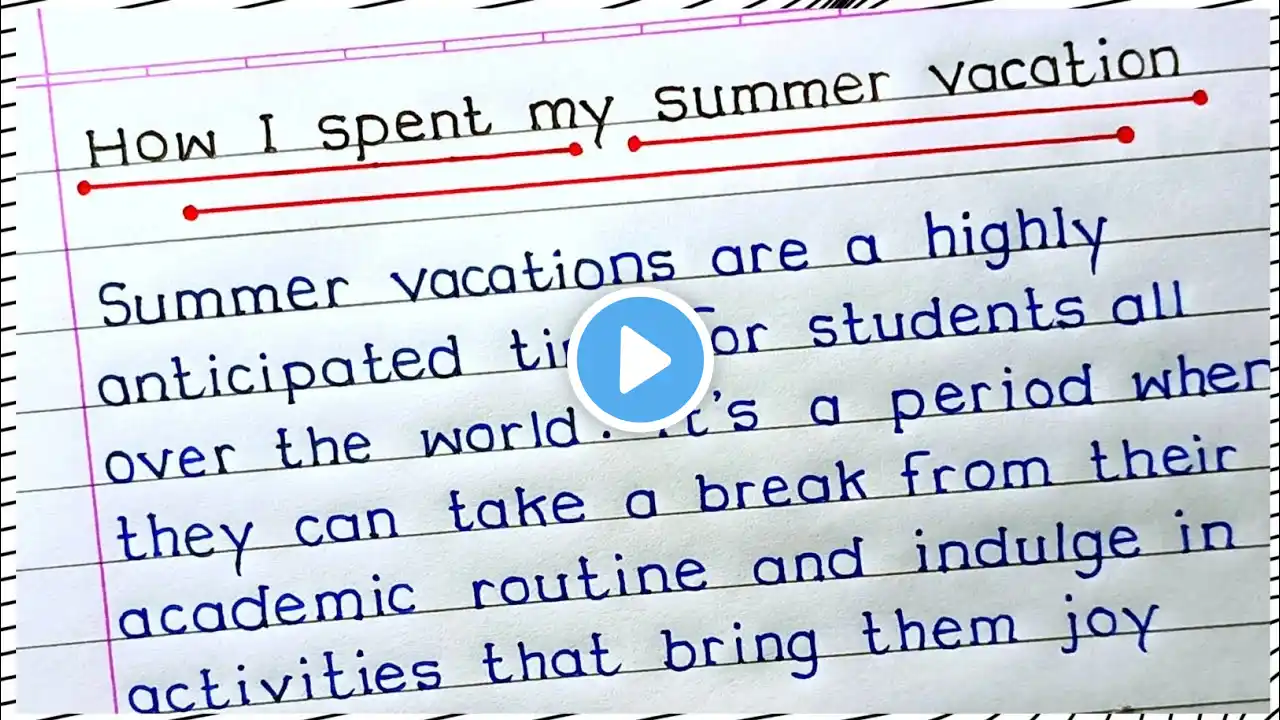 How I spent my summer vacation
Summer vacations are a highly
anticipated for students all
over the world. It's a period when
they can take a break from their
academic routine and indulge in
activities that bring them joy